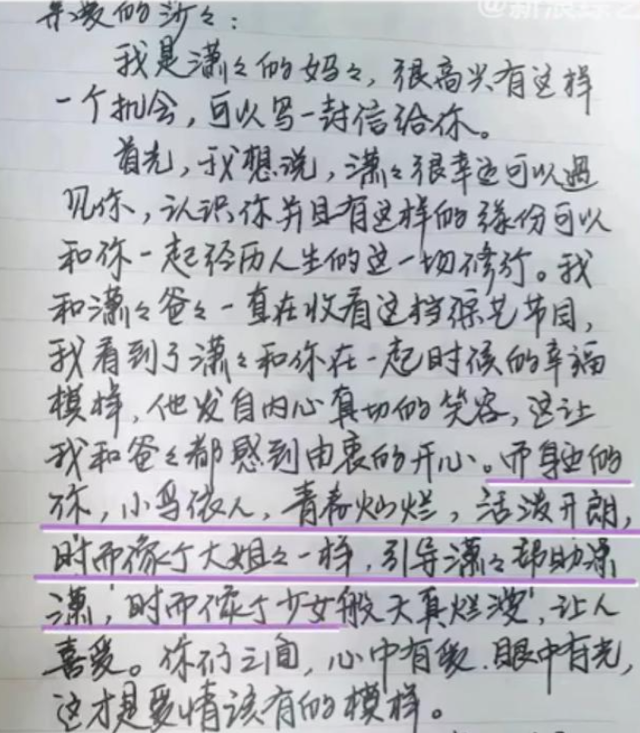 @新浪综艺
亲爱的沙々：
我是潇々的妈々，很高兴有这样
一个机会，可以写一封信给你。
首先，我想说，潇々很幸运可以遇
见你，认识你并且有这样的缘份可以
和你一起经历人生的这一场修行。我
和潇々爸々一直在收看这档综艺节目，
我看到了潇々和你在一起时候的幸福
模样，他发自内心真切的笑容，这让
我和爸々都感到由衷的开心。而身边的
你，小鸟依人，青春灿烂，活泼开朗，
时而像个大姐々一样，引导潇々帮助潇
潇，时而像个少女般天真烂漫，让人
喜爱。你们之间，心中有爱，眼中有光，
这才是爱情该有的模样。